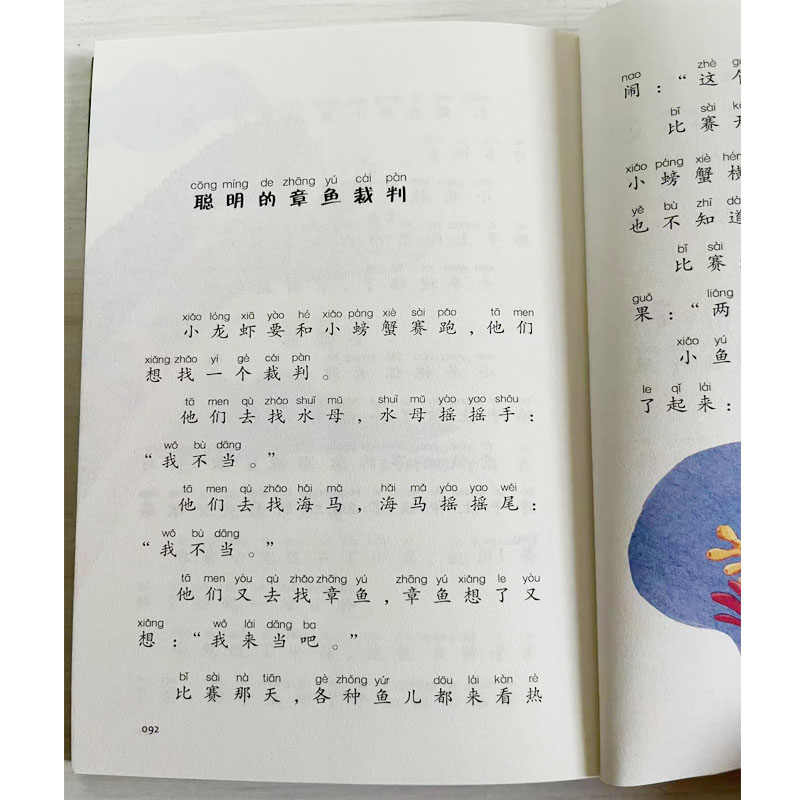 cōng míng de zhāng yú cái pàn
聪明的章鱼裁判
xiǎo lóng xiā yào hé xiǎo páng xiè sài pǎo tā men
小龙虾要和小螃蟹赛跑，他们
xiǎng zhǎo yí gè cái pàn
想找一个裁判。
tā men qù zhǎo shuǐ mǔ shuǐ mǔ yáo yao shǒu
他们去找水母，水母摇摇手：
wǒ bù dāng
“我不当。”
tā men qù zhǎo hǎi mǎ hǎi mǎ yáo yao wěi
他们去找海马，海马摇摇尾：
wǒ bù dāng
“我不当。”
tā men yòu qù zhǎo zhāng yú zhāng yú xiǎng le yòu
他们又去找章鱼，章鱼想了又
xiǎng wǒ lái dāng ba
想：“我来当吧。”
bǐ sài nà tiān gè zhǒng yúr dōu lái kàn rè
比赛那天，各种鱼儿都来看热
092
nao zhè
闹：“这个
bǐ sài
比赛
xiǎo páng xiè
小螃蟹横
yě bù zhī
也不知道
bǐ sài
比赛
guǒ liǎng
果：“两
xiǎo yú
小鱼
le qǐ lái
了起来：